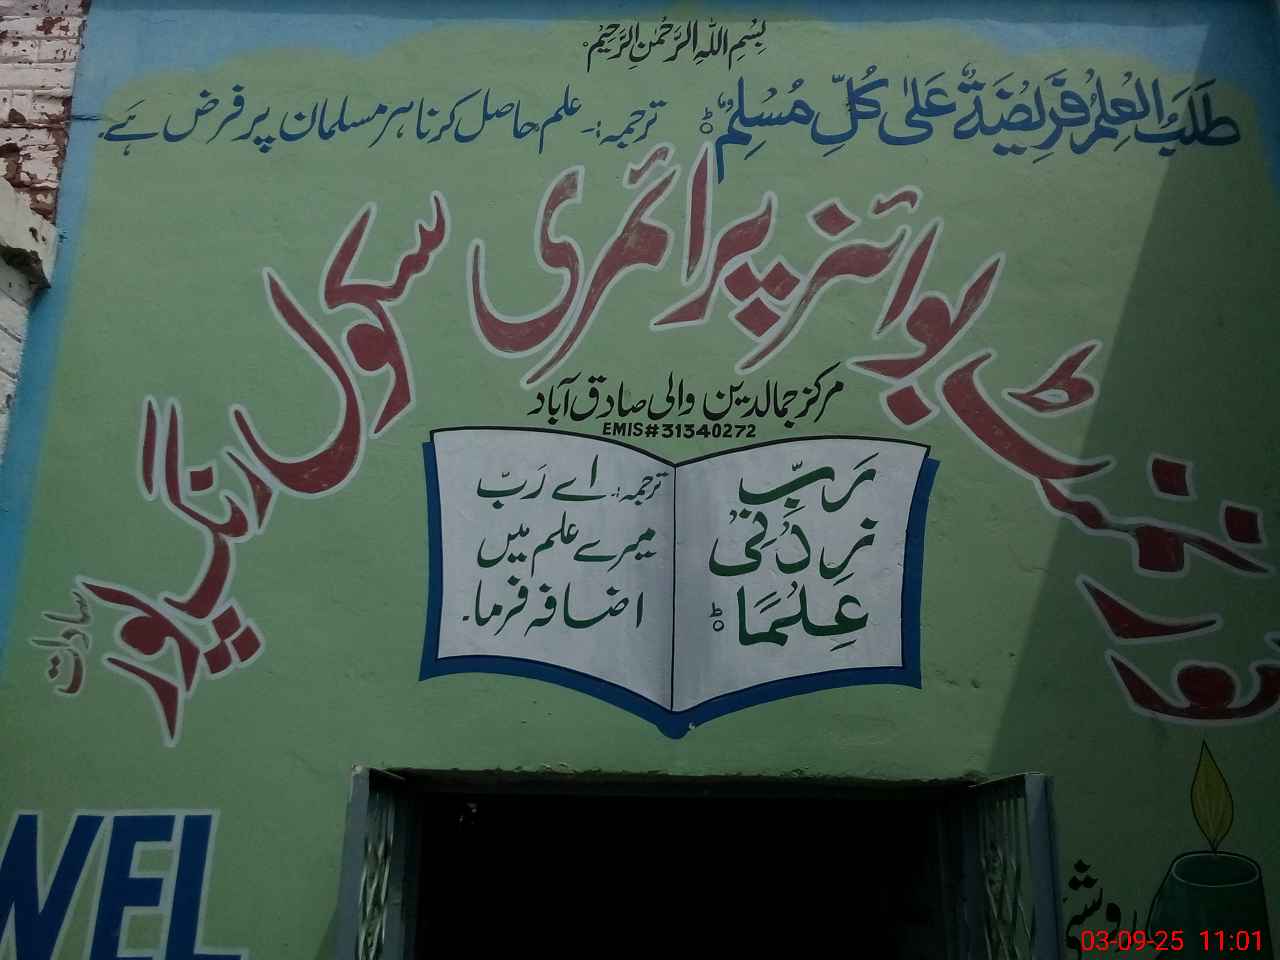 بِسْمِ اللّٰہِ الرَّحْمٰنِ الرَّحِیْمِ
طَلَبُ الْعِلْمِ فَرِیْضَۃٌ عَلیٰ کُلِّ مُسْلِمٍ ط ترجمہ:۔ علم حاصل کرنا ہر مسلمان پر فرض ہے۔
گورنمنٹ بوائز پرائمری سکول رنگپور
سادات
مرکز جمالدین والی صادق آباد
EMIS#31340272
رَبِّ
زِدْنِیْ
عِلْمًا ط
ترجمہ:۔ اے رَبّ
میرے علم میں
اضافہ فرما۔
WEL
روشنی
03-09-25 11:01